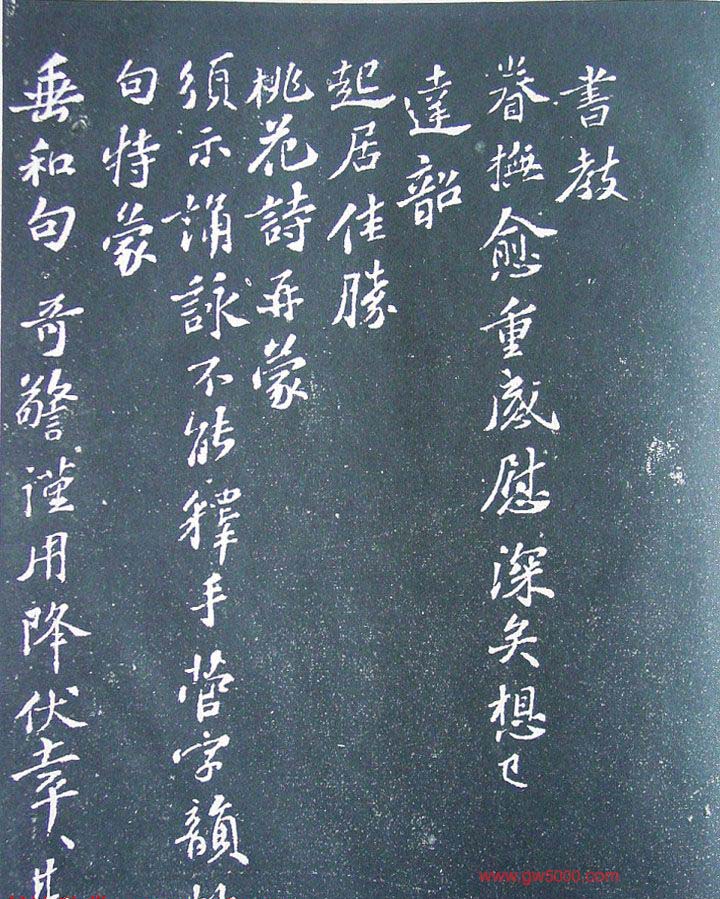 書教
眷撫愈重感慰深矣想已
達韶
起居佳勝
桃花詩再蒙
須示誦詠不能釋手菅字韻
句特蒙
垂和句奇警謹用降伏幸〻甚
www.gw5000.com